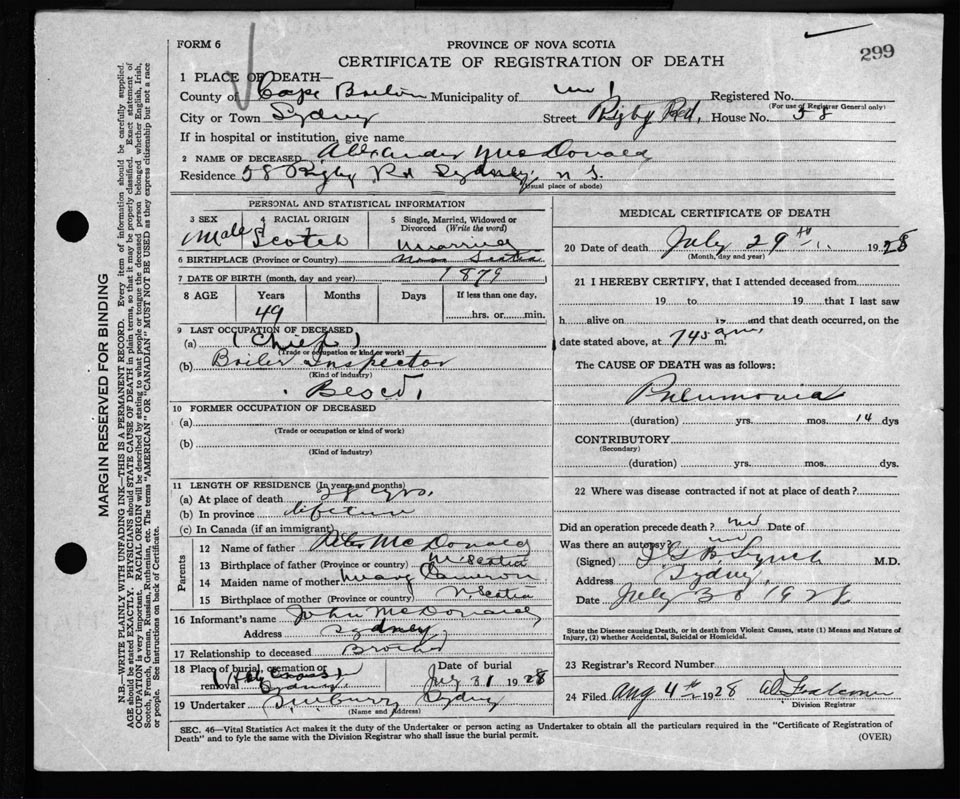 299
FORM 6
PROVINCE OF NOVA SCOTIA
CERTIFICATE OF REGISTRATION OF DEATH
1 PLACE OF DEATH—
County of Cape Breton Municipality of Registered No.
(For use of Registrar General only)
City or Town Sydney Street Rigby Rd, House No. 58
If in hospital or institution, give name
2 NAME OF DECEASED Alexander McDonald
Residence 58 Rigby Rd Sydney, N S.
(Usual place of abode)
PERSONAL AND STATISTICAL INFORMATION
3 SEX 4 RACIAL ORIGIN 5 Single, Married, Widowed or Divorced (Write the word)
Male Scotch Married
6 BIRTHPLACE (Province or Country) Nova Scotia
7 DATE OF BIRTH (month, day and year) 1879
8 AGE Years Months Days If less than one day,
49 hrs. or min.
9 LAST OCCUPATION OF DECEASED
(a) (Chief)
(Trade or occupation or kind of work)
(b) Boiler Inspector
(Kind of industry)
Besco.
10 FORMER OCCUPATION OF DECEASED
(a)
(Trade or occupation or kind of work)
(b)
(Kind of industry)
11 LENGTH OF RESIDENCE (In years and months)
(a) At place of death 28 yrs.
(b) In province lifetime
(c) In Canada (if an immigrant)
Parents
12 Name of father McDonald
13 Birthplace of father (Province or country) N Scotia
14 Maiden name of mother Mary Cameron
15 Birthplace of mother (Province or country) N Scotia
16 Informant's name John McDonald
Address Sydney
17 Relationship to deceased Brother
18 Place of burial, cremation or removal Holy Cross Sydney Date of burial July 31 1928
19 Undertaker Sydney
(Name and Address)
MEDICAL CERTIFICATE OF DEATH
20 Date of death July 29th 1928
(Month, day and year)
21 I HEREBY CERTIFY, that I attended deceased from
19 to 19 that I last saw
h alive on 19 and that death occurred, on the
date stated above, at 745 am m.
The CAUSE OF DEATH was as follows:
Pneumonia
(duration) yrs. mos. 14 dys
CONTRIBUTORY
(Secondary)
(duration) yrs. mos. dys.
22 Where was disease contracted if not at place of death?
Did an operation precede death? no Date of
Was there an autopsy? no
(Signed) Lynch M.D.
Address Sydney,
Date July 30 1928
State the Disease causing Death, or in death from Violent Causes, state (1) Means and Nature of
Injury, (2) whether Accidental, Suicidal or Homicidal.
23 Registrar's Record Number
24 Filed Aug 4th 1928
Division Registrar
SEC. 46—Vital Statistics Act makes it the duty of the Undertaker or person acting as Undertaker to obtain all the particulars required in the "Certificate of Registration of
Death" and to fyle the same with the Division Registrar who shall issue the burial permit.
(OVER)
MARGIN RESERVED FOR BINDING
N.B.—WRITE PLAINLY WITH UNFADING INK—THIS IS A PERMANENT RECORD. Every item of information should be carefully supplied.
AGE should be stated EXACTLY. PHYSICIANS should STATE CAUSE OF DEATH in plain terms, so that it may be properly classified. Exact statement of
OCCUPATION is very important. RACIAL ORIGIN will be described by stating to what people or tongue the deceased person belonged whether English, Irish,
Scotch, French, German, Russian, Ruthenian, etc. The terms "AMERICAN" OR "CANADIAN" MUST NOT BE USED as they express citizenship but not a race
or people. See instructions on back of Certificate.